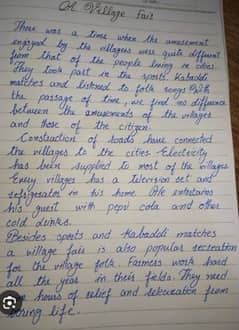 A Village Fair
There was a time when the amusement
enjoyed by the villagers were quite different
from that of the people living in cities.
They took part in the sports. Kabaddi
matches and listened to folk songs. With
the passage of time, we find no difference
between the amusements of the villages
and those of the citizen.
Construction of roads have connected
the villages to the cities. Electricity
has been supplied to most of the villages
Every villager has a television set and
refrigerator in his home. He entertains
his guest with pepsi cola and other
cold drinks.
Besides sports and kabaddi matches
a village fair is also popular recreation
for the village folk. Farmers work hard
all the year in their fields. They need
hours of relief and relaxation from
boring life.